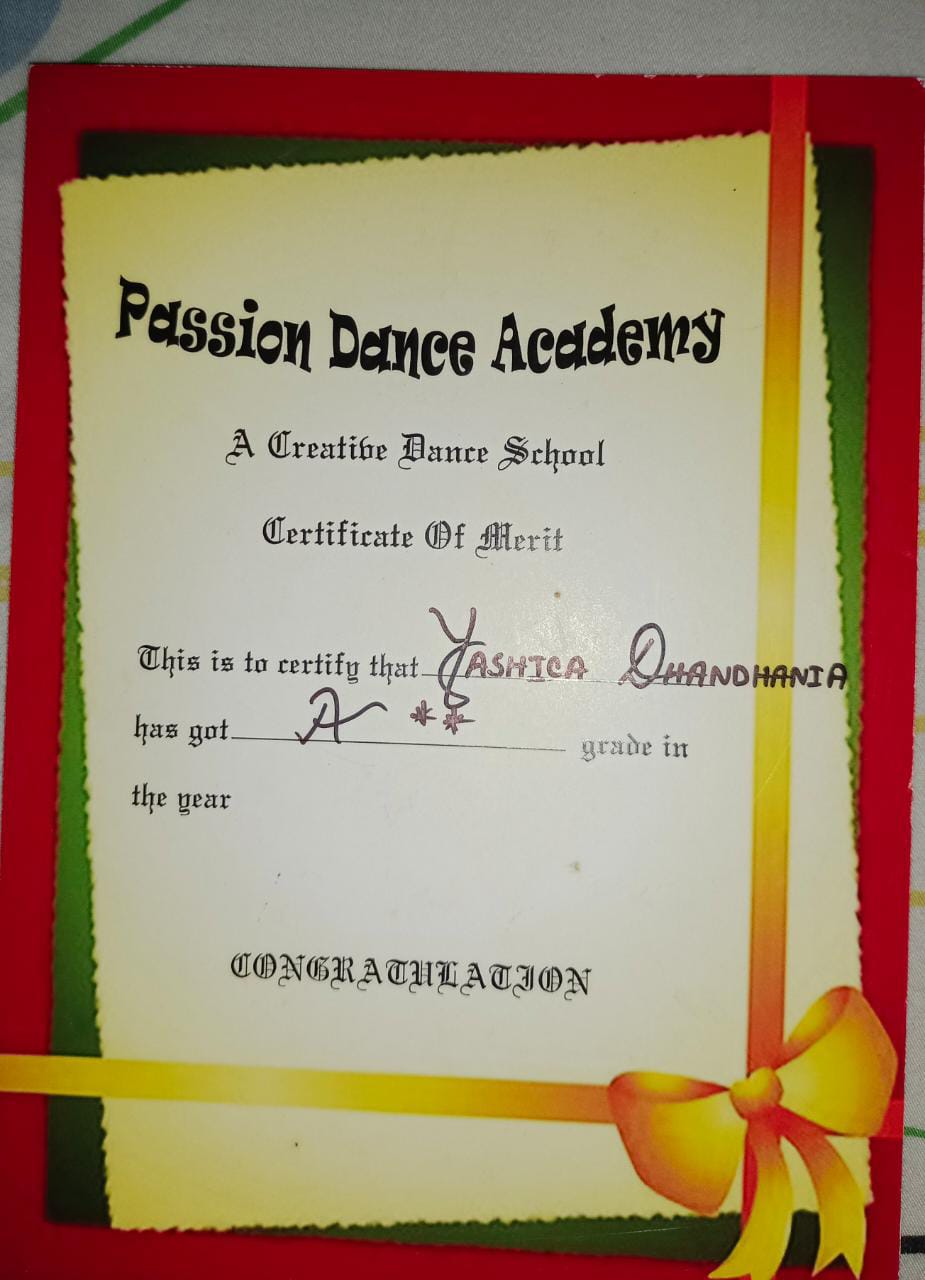 Passion Dance Academy
A Creative Dance School
Certificate Of Merit
This is to certify that YASHICA DHANDHANIA
has got A** grade in
the year
CONGRATULATION